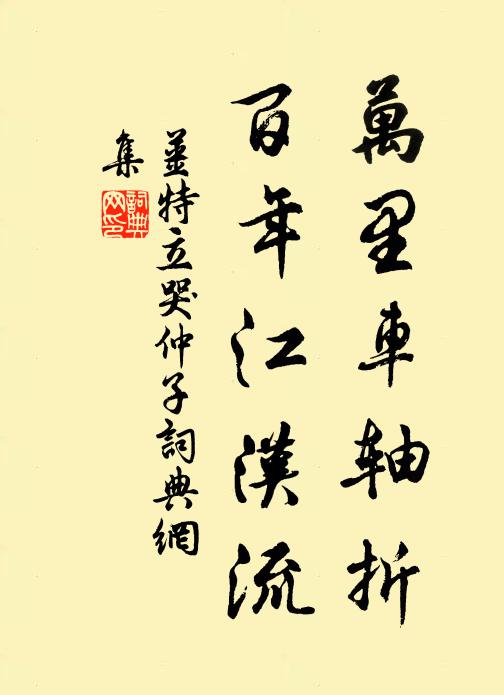 萬里車軸折
百年江漢流
姜特立哭仲子詞典網
集
詞典
网印